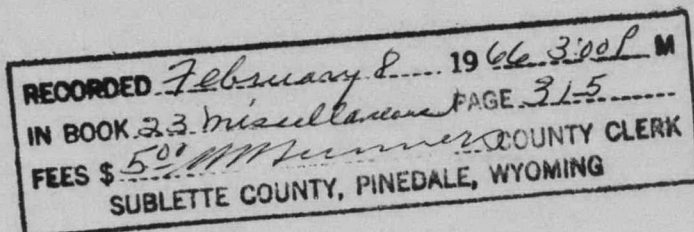 RECORDED February 8 1966 3:00 P M
IN BOOK 23 miscellaneous PAGE 315
FEES $ 5.00 COUNTY CLERK
SUBLETTE COUNTY, PINEDALE, WYOMING